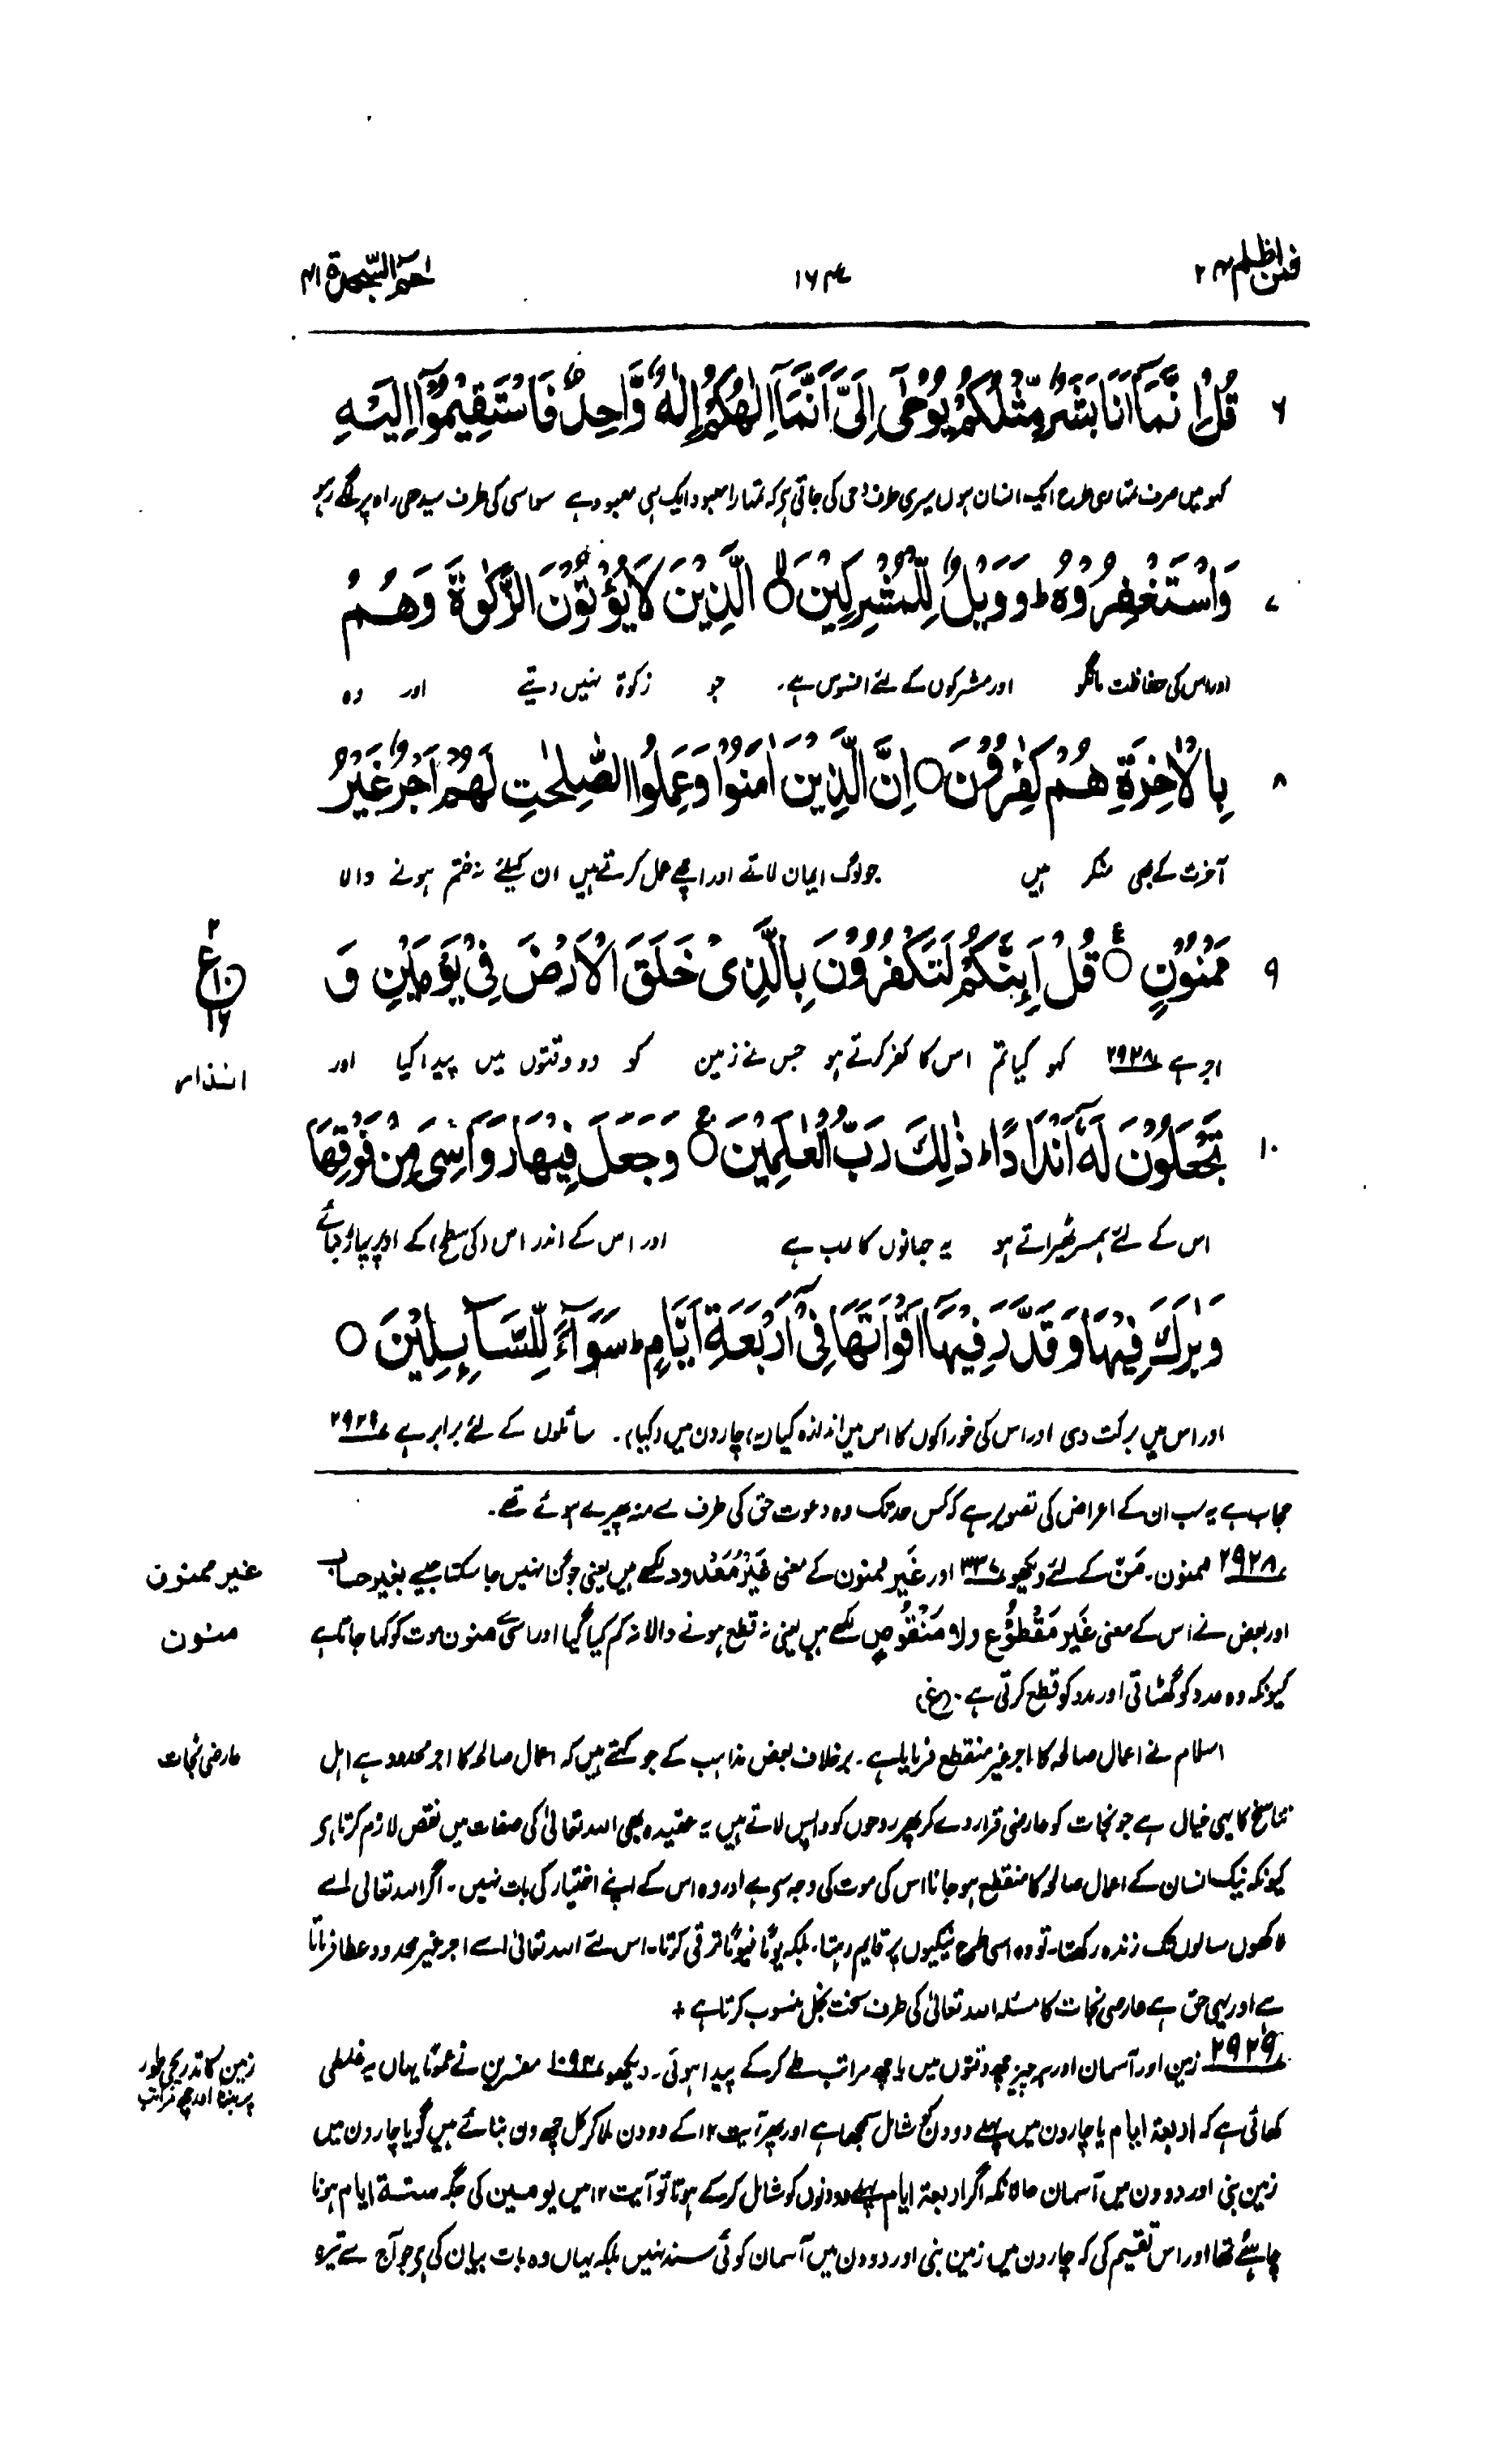 فمن اظلم ۲۴
۱۶۴۴
حٰمٓ السّجدة ۴۱
۶ قُلْ اِنَّمَآ اَنَا بَشَرٌ مِّثْلُكُمْ يُوْحٰٓى اِلَىَّ اَنَّمَآ اِلٰهُكُمْ اِلٰهٌ وَّاحِدٌ فَاسْتَقِيْمُوْٓا اِلَيْهِ
کہو میں صرف تمہاری طرح ایک انسان ہوں میری طرف وحی کی جاتی ہے کہ تمہارا معبود ایک ہی معبود ہے سو اسی کی طرف سیدھی راہ پر لگے رہو
۷ وَاسْتَغْفِرُوْهُ ط وَوَيْلٌ لِّلْمُشْرِكِيْنَ ۙ الَّذِيْنَ لَا يُؤْتُوْنَ الزَّكٰوةَ وَهُمْ
اور اس کی حفاظت مانگو اور مشرکوں کے لئے افسوس ہے۔ جو زکوٰۃ نہیں دیتے اور وہ
۸ بِالْاٰخِرَةِ هُمْ كٰفِرُوْنَ ○ اِنَّ الَّذِيْنَ اٰمَنُوْا وَعَمِلُوا الصّٰلِحٰتِ لَهُمْ اَجْرٌ غَيْرُ
آخرت کے بھی منکر ہیں جو لوگ ایمان لاتے اور اچھے عمل کرتے ہیں ان کیلئے نہ ختم ہونے والا
۹ مَمْنُوْنٍ ○ قُلْ اَئِنَّكُمْ لَتَكْفُرُوْنَ بِالَّذِىْ خَلَقَ الْاَرْضَ فِىْ يَوْمَيْنِ وَ
۲
ع ۱۰
۱۶
اجر ہے ۲۹۲۸ کہو کیا تم اس کا کفر کرتے ہو جس نے زمین کو دو وقتوں میں پیدا کیا اور
انذار
۱۰ تَجْعَلُوْنَ لَهٗٓ اَنْدَادًا ط ذٰلِكَ رَبُّ الْعٰلَمِيْنَ ○ وَجَعَلَ فِيْهَا رَوَاسِىَ مِنْ فَوْقِهَا
اس کے لئے ہمسر ٹھیراتے ہو یہ جہانوں کا رب ہے اور اس کے اندر اس (کی سطح) کے اوپر پہاڑ بنائے
وَبٰرَكَ فِيْهَا وَقَدَّرَ فِيْهَآ اَقْوَاتَهَا فِىْٓ اَرْبَعَةِ اَيَّامٍ ط سَوَآءً لِّلسَّآئِلِيْنَ ○
اور اس میں برکت دی اور اس کی خوراکوں کا اس میں اندازہ کیا (یہ) چار دن میں (کیا)۔ سائلوں کے لئے برابر ہے ۲۹۲۹
حجاب ہے یہ سب ان کے اعراض کی تصویر ہے کہ کس حد تک وہ دعوت حق کی طرف سے منہ پھیرے ہوئے تھے۔
غیر ممنون
۲۹۲۸ ممنون۔ مَنّ کے لئے دیکھو ۳۳۷ اور غَیر ممنون کے معنی غَیْرُ مَعْدُود لکھے ہیں یعنی جو گن نہیں جا سکتا جیسے بغیر حساب
ممنون
اور بعض نے اس کے معنی غَیر مَقْطُوْع ولا مَنْقُوص لکھے ہیں یعنی نہ قطع ہونے والا نہ کم کیا گیا اور اسی سے منون موت کو کہا جاتا ہے
کیونکہ وہ عدد کو گھٹاتی اور مدد کو قطع کرتی ہے۔ (غ)
عارضی نجات
اسلام نے اعمال صالحہ کا اجر غیر منقطع فرمایا ہے۔ برخلاف بعض مذاہب کے جو کہتے ہیں کہ اعمال صالحہ کا اجر محدود ہے اہل
تناسخ کا یہی خیال ہے جو نجات کو عارضی قرار دے کر پھر روحوں کو واپس لاتے ہیں یہ عقیدہ بھی اللہ تعالیٰ کی صفات میں نقص لازم کرتا ہے
کیونکہ نیک انسان کے اعمال صالحہ کا منقطع ہو جانا اس کی موت کی وجہ سے ہے اور وہ اس کے اپنے اختیار کی بات نہیں۔ اگر اللہ تعالیٰ اسے
لاکھوں سالوں تک زندہ رکھتا۔ تو وہ اسی طرح نیکیوں پر قایم رہتا۔ بلکہ یومًا فیومًا ترقی کرتا۔ اس لئے اللہ تعالیٰ اسے اجر غیر محدود عطا فرماتا
ہے اور یہی حق ہے عارضی نجات کا مسئلہ اللہ تعالیٰ کی طرف سخت بخل منسوب کرتا ہے +
زمین کا تدریجی طور
پر بننا اور چھ مراتب
۲۹۲۹ زمین اور آسمان اور ہر چیز چھ وقتوں میں یا چھ مراتب طے کر کے پیدا ہوئی۔ دیکھو ۱۰۹۳ مفسرین نے عمومًا یہاں یہ غلطی
کھائی ہے کہ اربعة ایام یا چار دن میں پہلے دو دن کو شامل سمجھا ہے اور پھر آیت ۱۲ کے دو دن ملا کر کل چھ دن بنائے ہیں گویا چار دن میں
زمین بنی اور دو دن میں آسمان حالانکہ اگر اربعة ایام پہلے دو دنوں کو شامل کر کے ہوتا تو آیت ۱۲ میں یومین کی جگہ ستة ایام ہونا
چاہئے تھا اور اس تقسیم کی کہ چار دن میں زمین بنی اور دو دن میں آسمان کوئی سند نہیں بلکہ یہاں وہ بات بیان کی ہے جو آج سے تیرہ